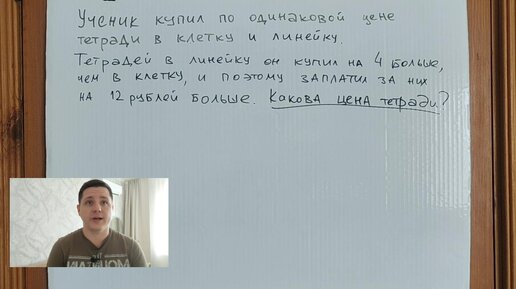 Ученик купил по одинаковой цене
тетради в клетку и линейку.
Тетрадей в линейку он купил на 4 больше,
чем в клетку, и поэтому заплатил за них
на 12 рублей больше. Какова цена тетради?